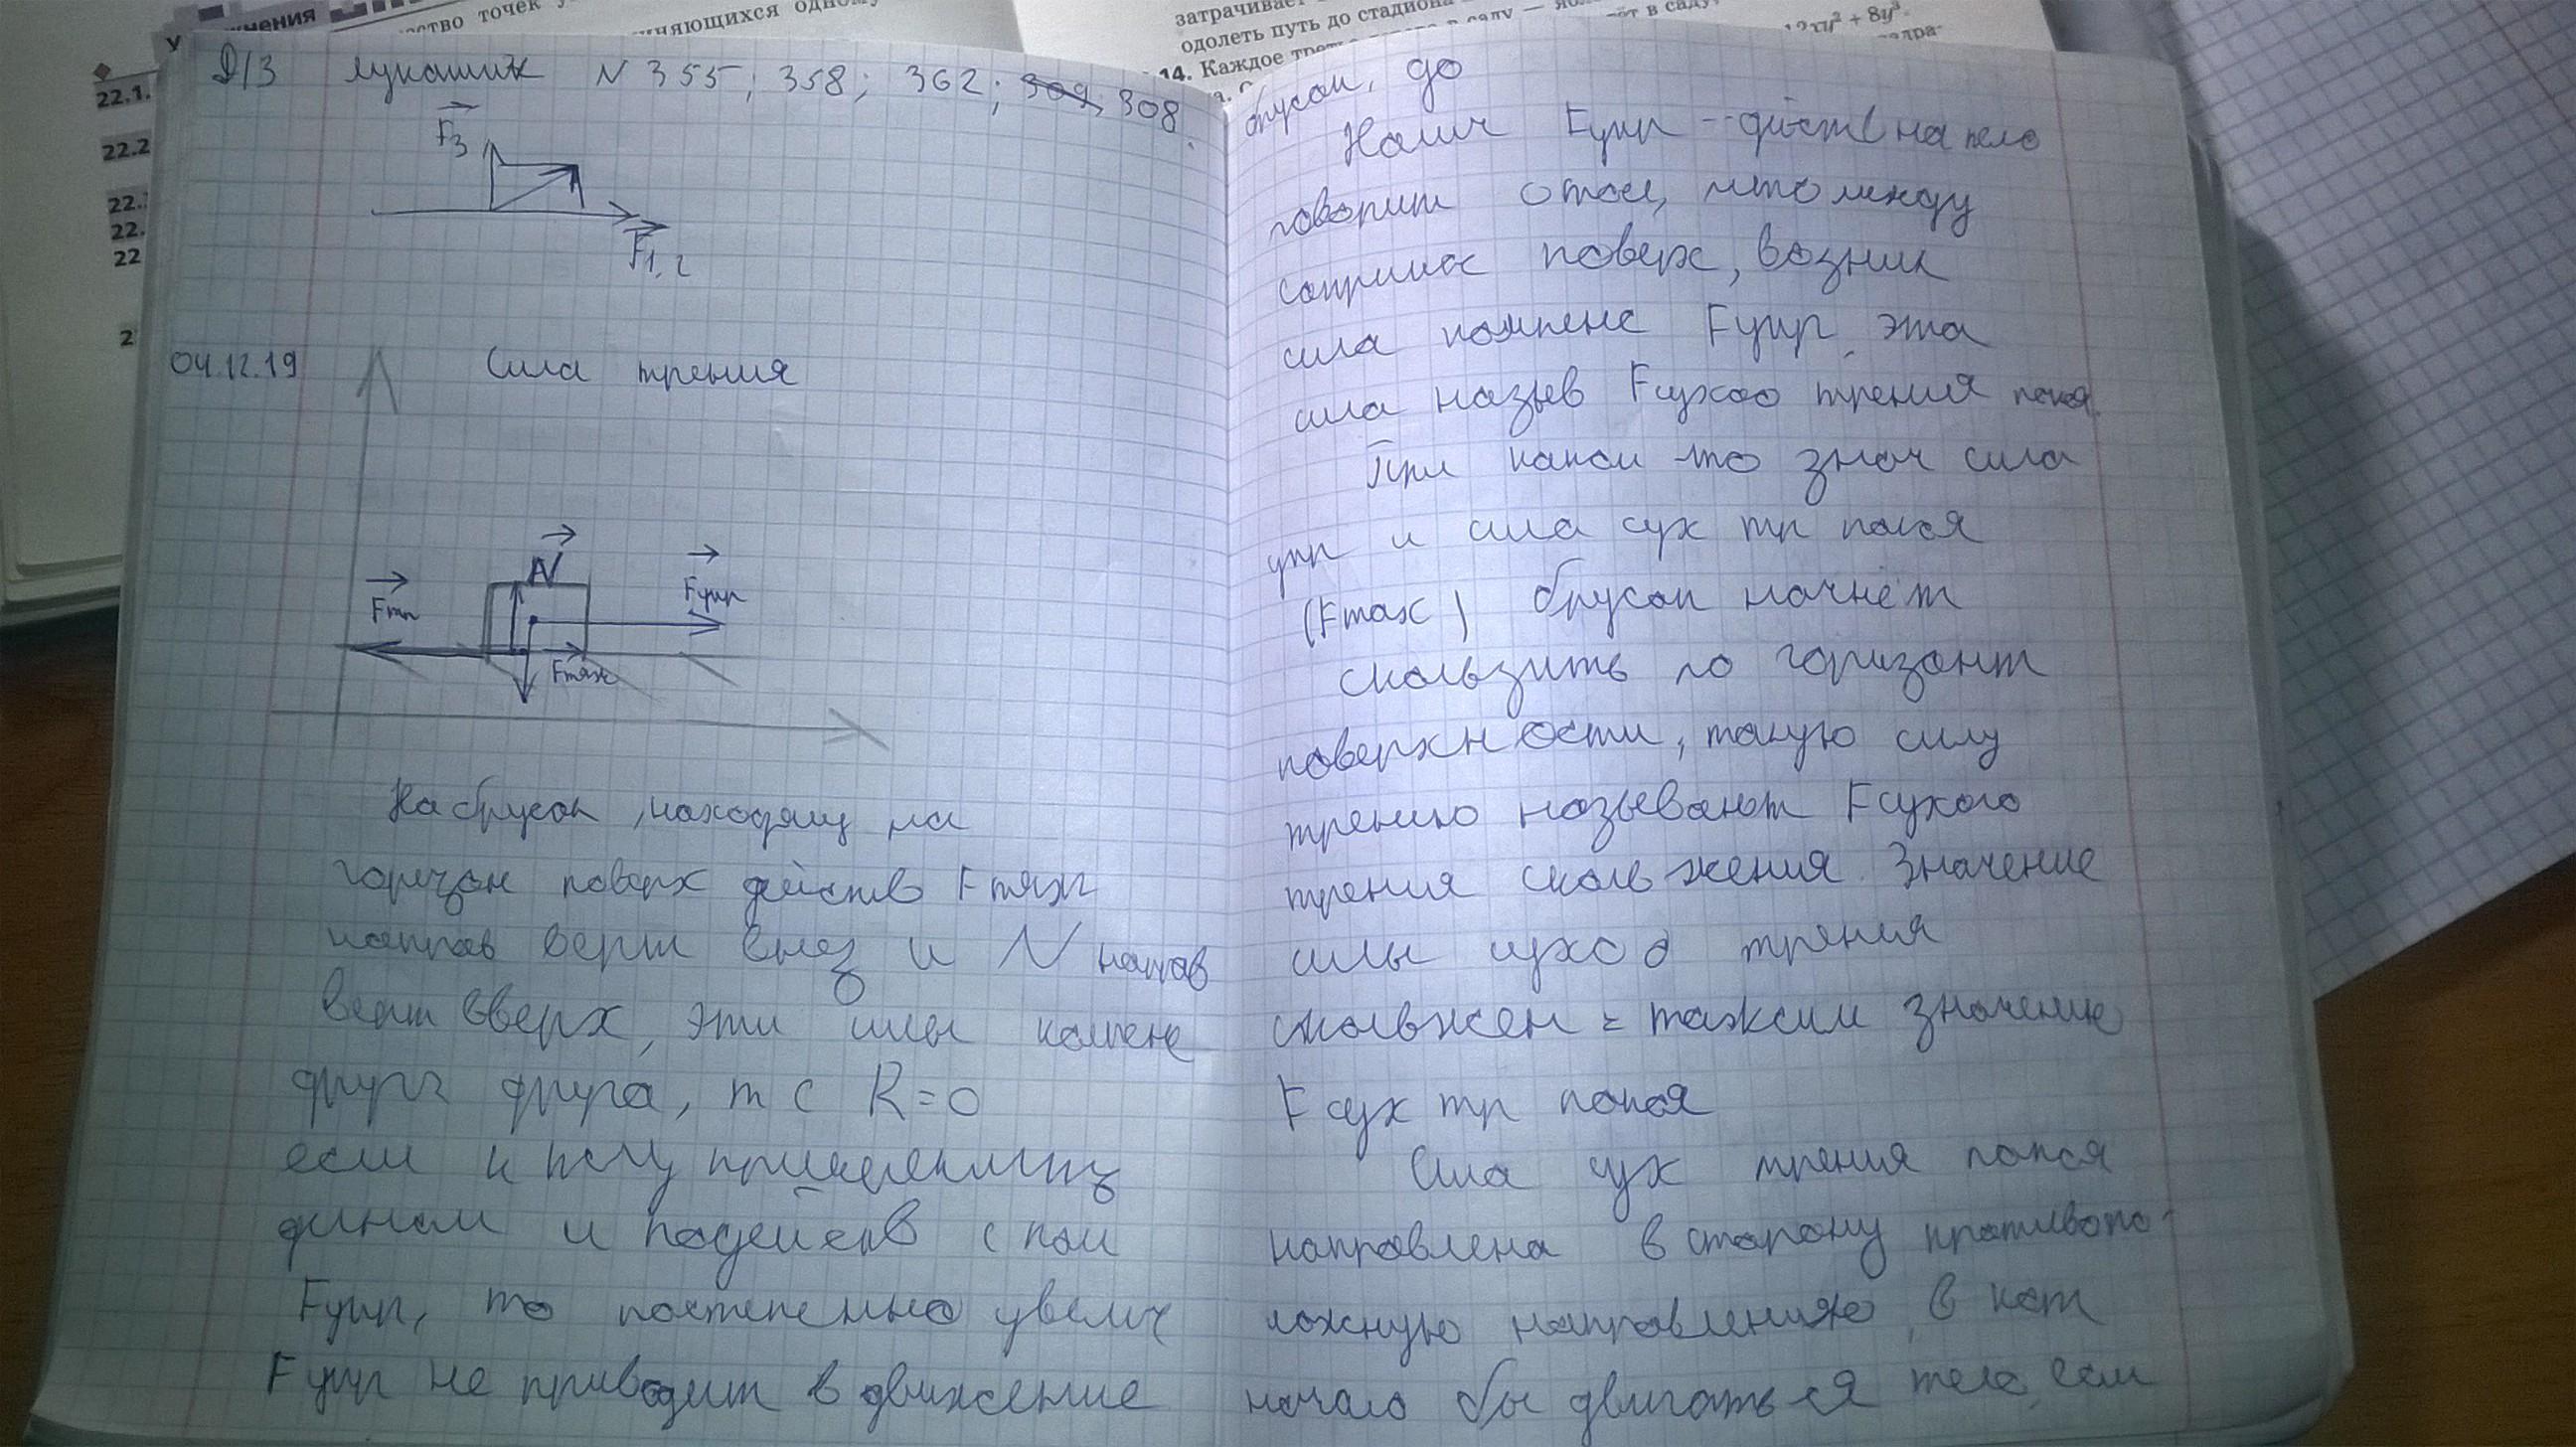 Д/З Лукашик N 355; 358; 362; 309, 308
F3
F1,2
04.12.19 Сила трения
N
Fтр Fупр
Fтяж
На брусок, находящ на
горизон поверх действ Fтяж
направ верт вниз и N направ
верт вверх, эти силы компенс
друг друга, т е R=0
если к телу прикрепить
динам и подейств с ним
Fупр, то постепенно увелич
Fупр не приводит в движение
брусок, до
Налич Fупр - действ на тело
говорит о том, что между
соприкас поверх, возник
сила компенс Fупр, эта
сила назыв Fсухого трения покоя.
При каком-то знач сила
упр и сила сух тр покоя
(Fmax) брусок начнёт
скользить по горизонт
поверхности, такую силу
трению называют Fсухого
трения скольжения. Значение
силы сухого трения
скольжен = максим значение
F сух тр покоя
Сила сух трения покоя
направлена в сторону противопо-
ложную направлению, в кот
начало бы двигаться тело, если
22.1.
22.2
22.
22
2
затрачивает
одолеть путь до стадиона
14. Каждое
12xy² + 8y³